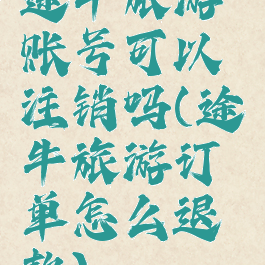 途牛旅游
账号可以
注销吗(途
牛旅游订
单怎么退
款)